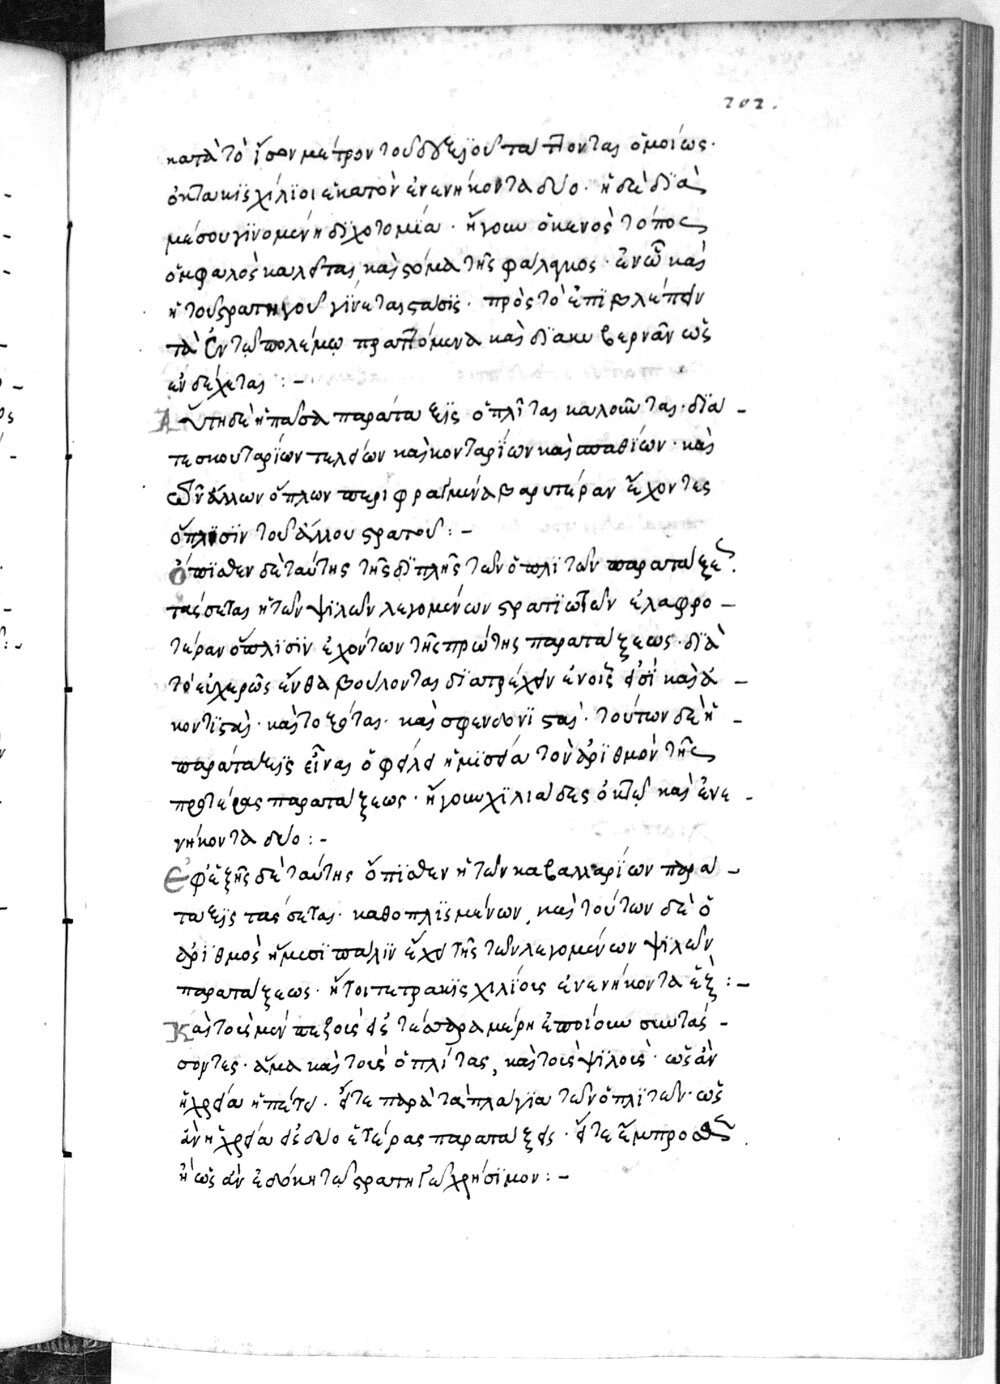 202.
κατὰ τὸ ἴσον μέτρον τοῦ δεξιοῦ τάττονται ὁμοίως·
ὀκτακισχίλιοι ἑκατὸν ἐνενήκοντα δύο· ἡ δὲ διὰ
μέσου γινομένη διχοτομία· ἤγουν ὁ κενὸς τόπος
ὀμφαλὸς καλεῖται καὶ στόμα τῆς φάλαγγος· ἐν ᾧ καὶ
ἡ τοῦ στρατηγοῦ γίνεται στάσις· πρὸς τὸ ἐπιβλέπειν
τὰ ἐν τῷ πολέμῳ πραττόμενα καὶ διακυβερνᾶν ὡς
ἐνδέχεται :–
Αὕτη δὲ ἡ πᾶσα παράταξις ὁπλῖται καλοῦνται· διά –
τε σκουταρίων τελείων καὶ κονταρίων καὶ σπαθίων· καὶ
τῶν ἄλλων ὅπλων περιφραγμένα βαρυτέραν ἔχοντες
ὅπλισιν τοῦ ἄλλου στρατοῦ :–
Ὄπισθεν δὲ ταύτης τῆς διπλῆς τῶν ὁπλιτῶν παρατάξε
τάσσεται ἡ τῶν ψιλῶν λεγομένων στρατιωτῶν ἐλαφρο –
τέραν ὅπλισιν ἐχόντων τῆς πρώτης παρατάξεως· διὰ
τὸ εὐχερῶς ἔνθα βούλονται διατρέχειν ἐν οἷς εἰσὶ καὶ ἀ –
κοντισταὶ· καὶ τοξόται· καὶ σφενδονισταὶ· τούτων δὲ ἡ –
παράταξις εἶναι ὀφείλει ἡμίσεια τὸν ἀριθμὸν τῆς
προτέρας παρατάξεως· ἤγουν χιλιάδες ὀκτὼ καὶ ἐνε –
νήκοντα δύο :–
Ἐφεξῆς δὲ ταύτης ὄπισθεν ἡ τῶν καβαλλαρίων παρά –
ταξις τάσσεται· καθοπλισμένων, καὶ τούτων δὲ ὁ
ἀριθμὸς ἥμισι πάλιν ἔχει τῆς τῶν λεγομένων ψιλῶν
παρατάξεως· ἤτοι τετρακισχιλίοις ἐνενήκοντα ἕξ :–
Καὶ τοὺς μὲν πεζοὺς εἰς τέσσαρα μέρη ἐποίουν συντάσ –
σοντες· ἅμα καὶ τοὺς ὁπλίτας, καὶ τοὺς ψιλοὺς· ὡς ἂν
ἡ χρεία ἠπείγει· εἴτε παρὰ τὰ πλάγια τῶν ὁπλιτῶν· ὡς
ἂν ἡ χρεία εἰς δύο ἑτέρας παρατάξεις· εἴτε ἔμπροσθεν
ἢ ὡς ἂν ἐδόκει τῷ στρατηγῷ χρήσιμον :–